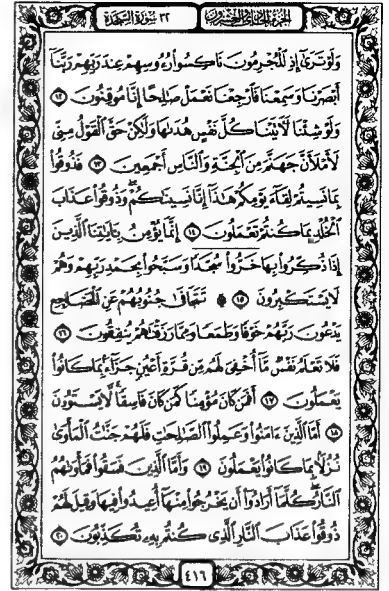 الجزء الحادي والعشرون ٣٢ سورة السجدة
وَلَوْ تَرَىٰٓ إِذِ ٱلْمُجْرِمُونَ نَاكِسُوا۟ رُءُوسِهِمْ عِندَ رَبِّهِمْ رَبَّنَآ
أَبْصَرْنَا وَسَمِعْنَا فَٱرْجِعْنَا نَعْمَلْ صَـٰلِحًا إِنَّا مُوقِنُونَ ١٢
وَلَوْ شِئْنَا لَـَٔاتَيْنَا كُلَّ نَفْسٍ هُدَىٰهَا وَلَـٰكِنْ حَقَّ ٱلْقَوْلُ مِنِّى
لَأَمْلَأَنَّ جَهَنَّمَ مِنَ ٱلْجِنَّةِ وَٱلنَّاسِ أَجْمَعِينَ ١٣ فَذُوقُوا۟
بِمَا نَسِيتُمْ لِقَآءَ يَوْمِكُمْ هَـٰذَآ إِنَّا نَسِينَـٰكُمْ ۖ وَذُوقُوا۟ عَذَابَ
ٱلْخُلْدِ بِمَا كُنتُمْ تَعْمَلُونَ ١٤ إِنَّمَا يُؤْمِنُ بِـَٔايَـٰتِنَا ٱلَّذِينَ
إِذَا ذُكِّرُوا۟ بِهَا خَرُّوا۟ سُجَّدًا وَسَبَّحُوا۟ بِحَمْدِ رَبِّهِمْ وَهُمْ
لَا يَسْتَكْبِرُونَ ۩ ١٥ ۞ تَتَجَافَىٰ جُنُوبُهُمْ عَنِ ٱلْمَضَاجِعِ
يَدْعُونَ رَبَّهُمْ خَوْفًا وَطَمَعًا وَمِمَّا رَزَقْنَـٰهُمْ يُنفِقُونَ ١٦
فَلَا تَعْلَمُ نَفْسٌ مَّآ أُخْفِىَ لَهُم مِّن قُرَّةِ أَعْيُنٍ جَزَآءًۢ بِمَا كَانُوا۟
يَعْمَلُونَ ١٧ أَفَمَن كَانَ مُؤْمِنًا كَمَن كَانَ فَاسِقًا ۚ لَّا يَسْتَوُۥنَ
١٨ أَمَّا ٱلَّذِينَ ءَامَنُوا۟ وَعَمِلُوا۟ ٱلصَّـٰلِحَـٰتِ فَلَهُمْ جَنَّـٰتُ ٱلْمَأْوَىٰ
نُزُلًۢا بِمَا كَانُوا۟ يَعْمَلُونَ ١٩ وَأَمَّا ٱلَّذِينَ فَسَقُوا۟ فَمَأْوَىٰهُمُ
ٱلنَّارُ ۖ كُلَّمَآ أَرَادُوٓا۟ أَن يَخْرُجُوا۟ مِنْهَآ أُعِيدُوا۟ فِيهَا وَقِيلَ لَهُمْ
ذُوقُوا۟ عَذَابَ ٱلنَّارِ ٱلَّذِى كُنتُم بِهِۦ تُكَذِّبُونَ ٢٠
٤١٦